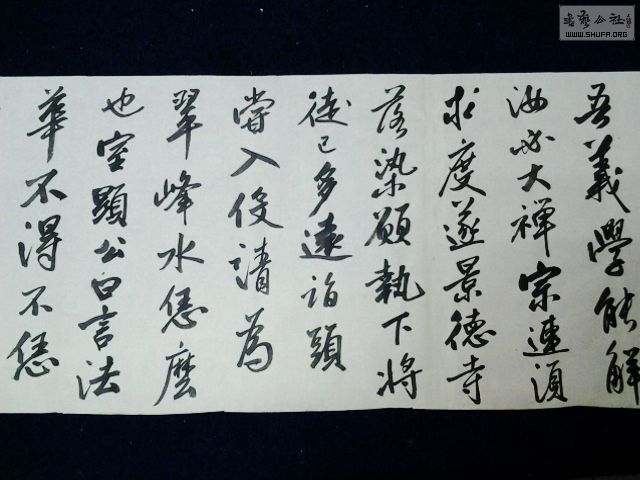 吾義學能解
汝必大禅宗速須
求度遂景德寺
落染願執下将
徒已多遠詣顯
嘗入役請為
翠峰水恁麼
也室顯公曰言法
華不得不恁
書藝公社
WWW.SHUFA.ORG